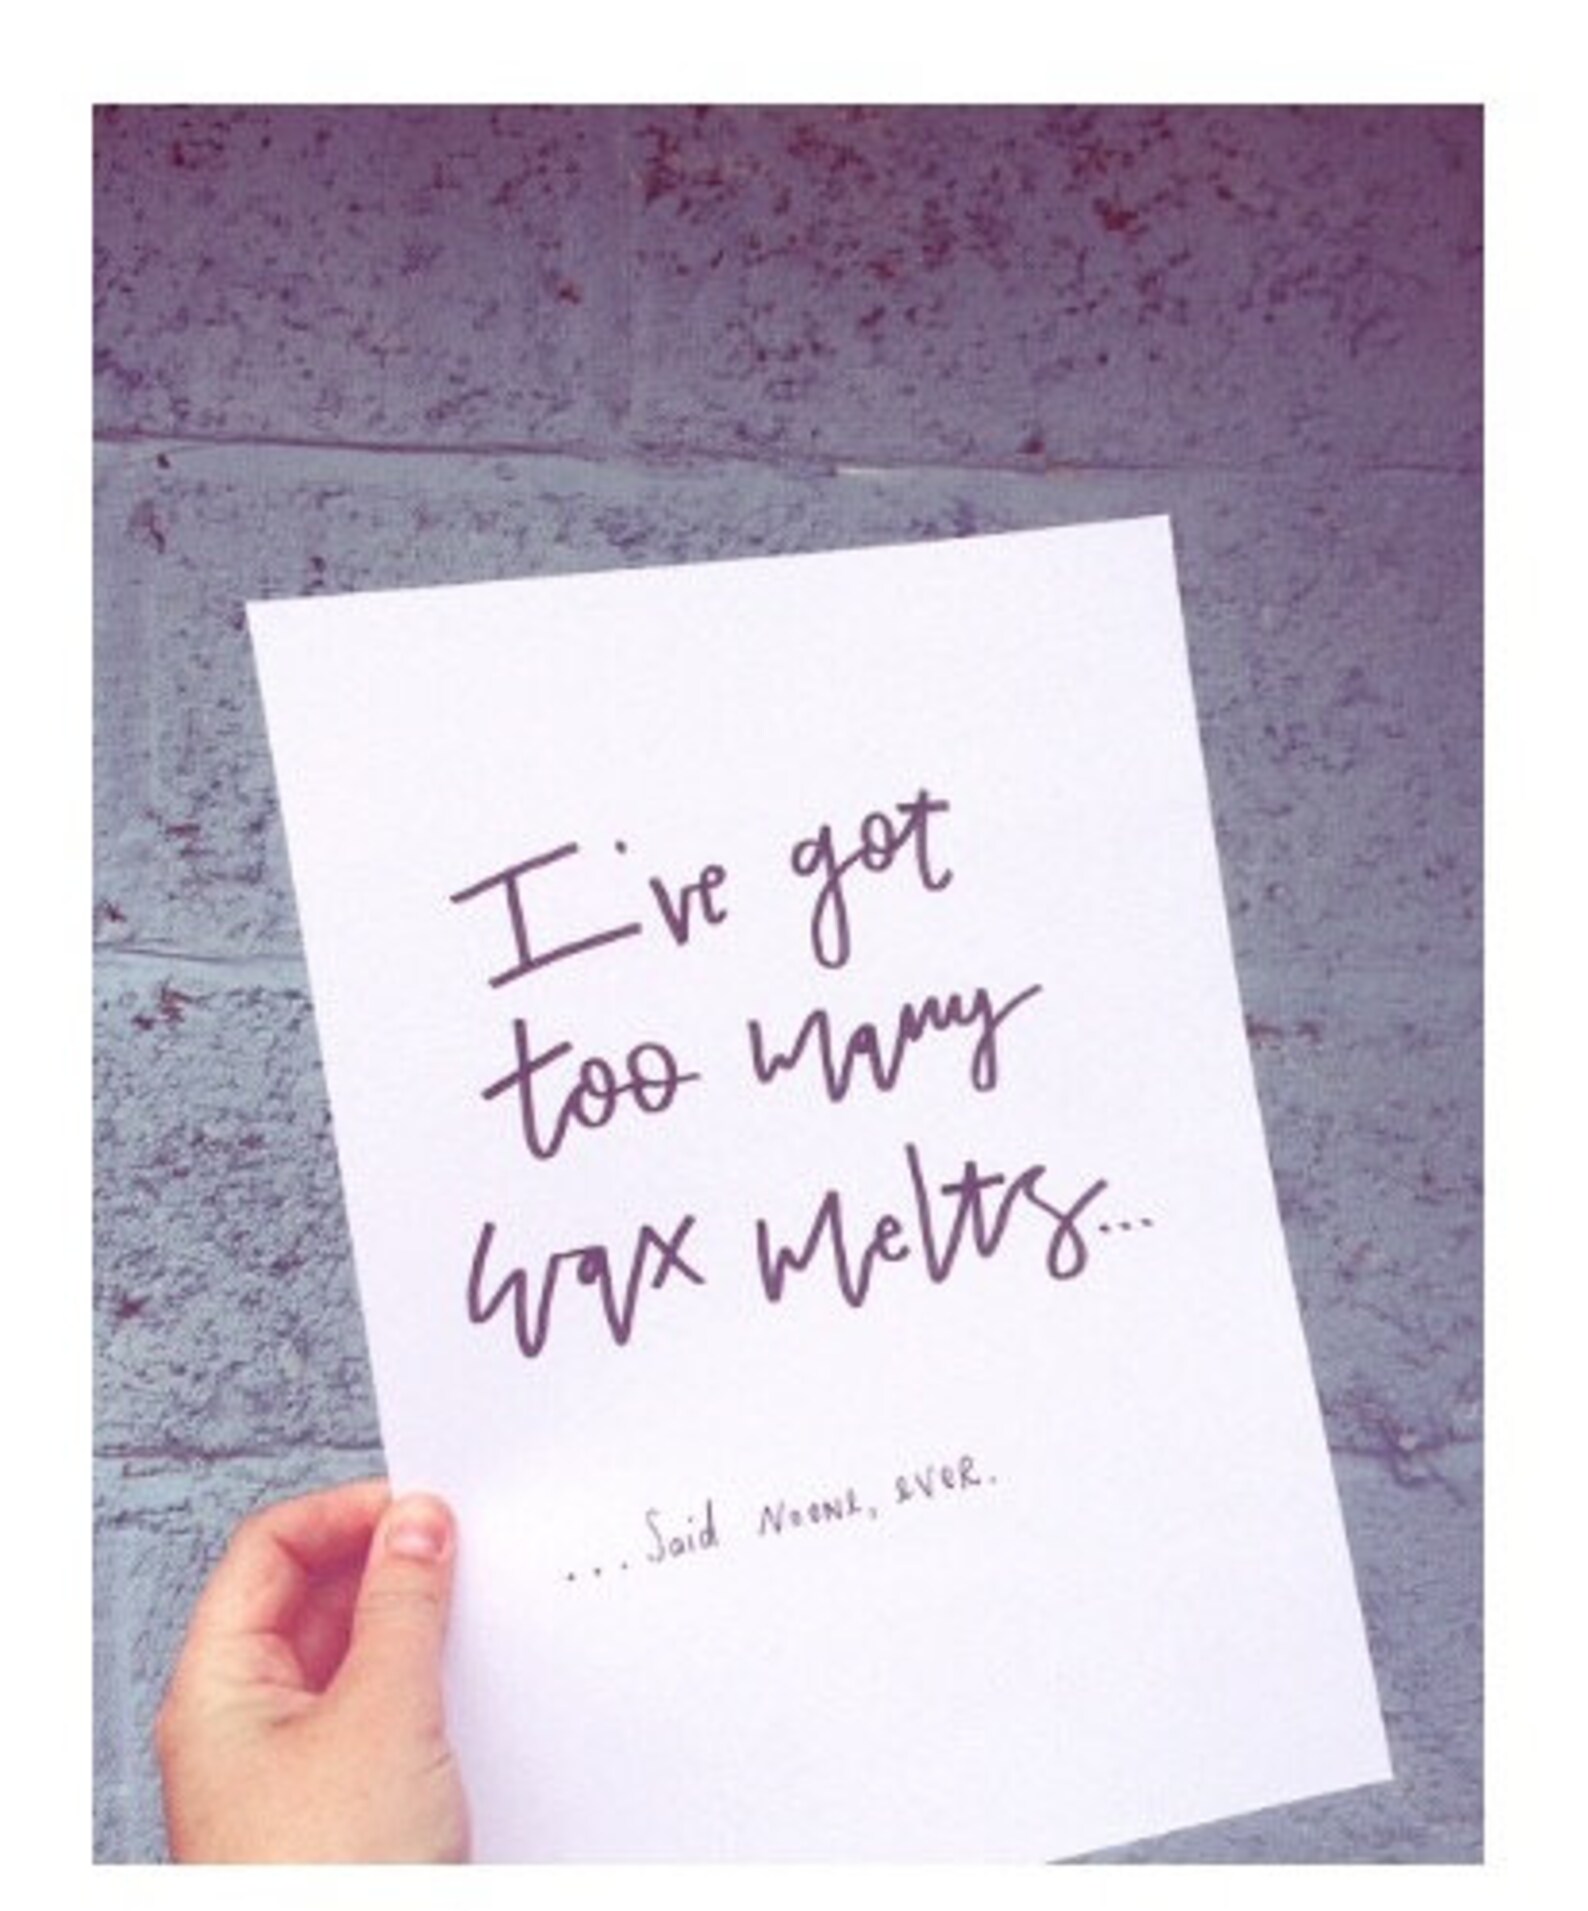 I've got
too many
wax melts...
...Said Noone, ever.